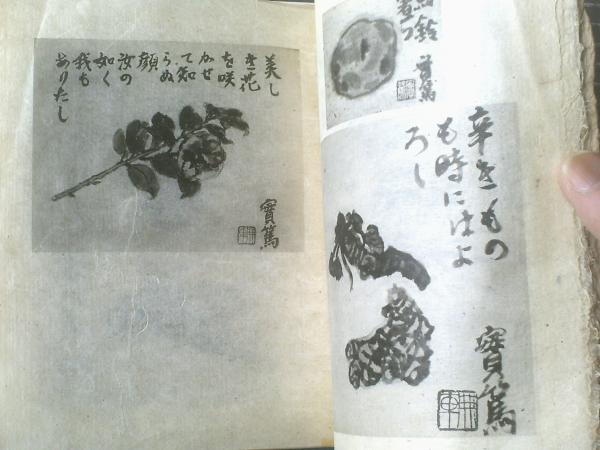 美し
き花
を咲
かせ
て知
らぬ
顔
汝の
如く
我も
ありたし
實篤
馬鈴
實篤
辛きもの
も時にはよ
ろし
實篤